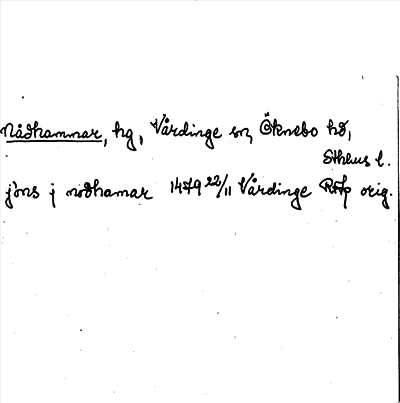 Nådhammar, hg, Vårdinge sn, Öknebo hd,
Sthlms l.
jöns j nodhamar 1479 22/11 Vårdinge RAp orig.